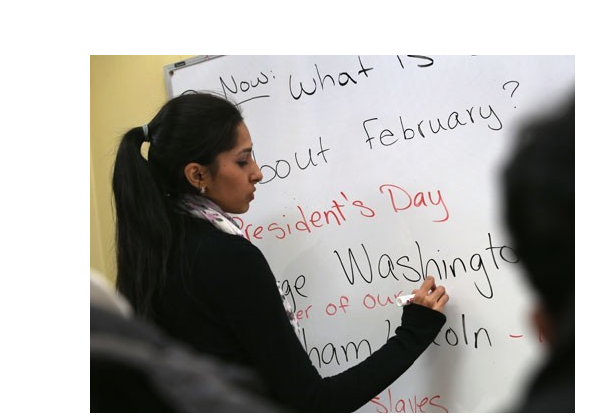 Now: What is
bout February?
resident's Day
ge Washingto
er of our
ham coln -
slaves